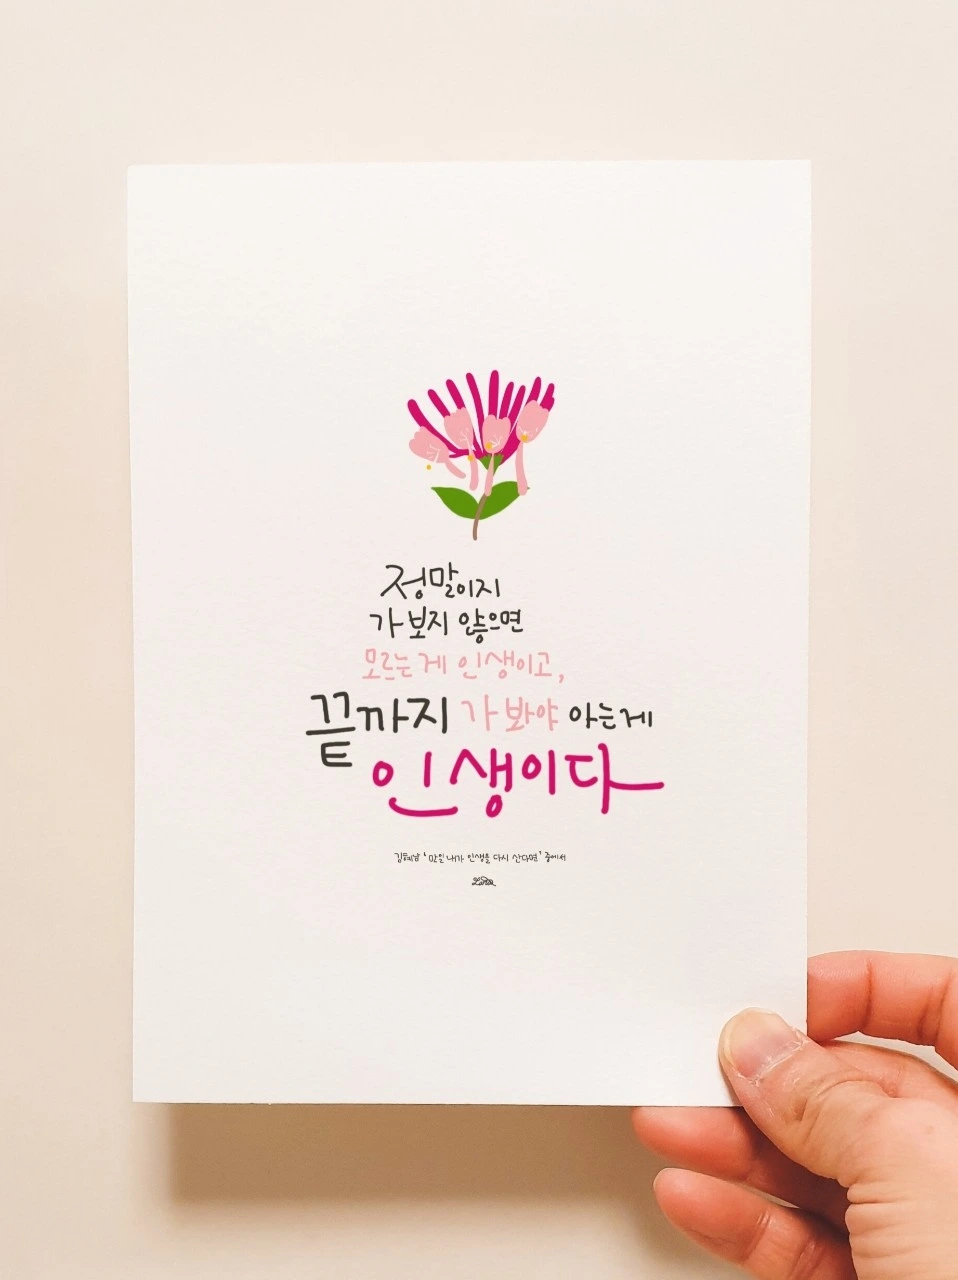 정말이지
가 보지 않으면
모르는게 인생이고,
끝까지 가 봐야 아는게
인생이다
김혜남 '만일 내가 인생을 다시 산다면' 중에서